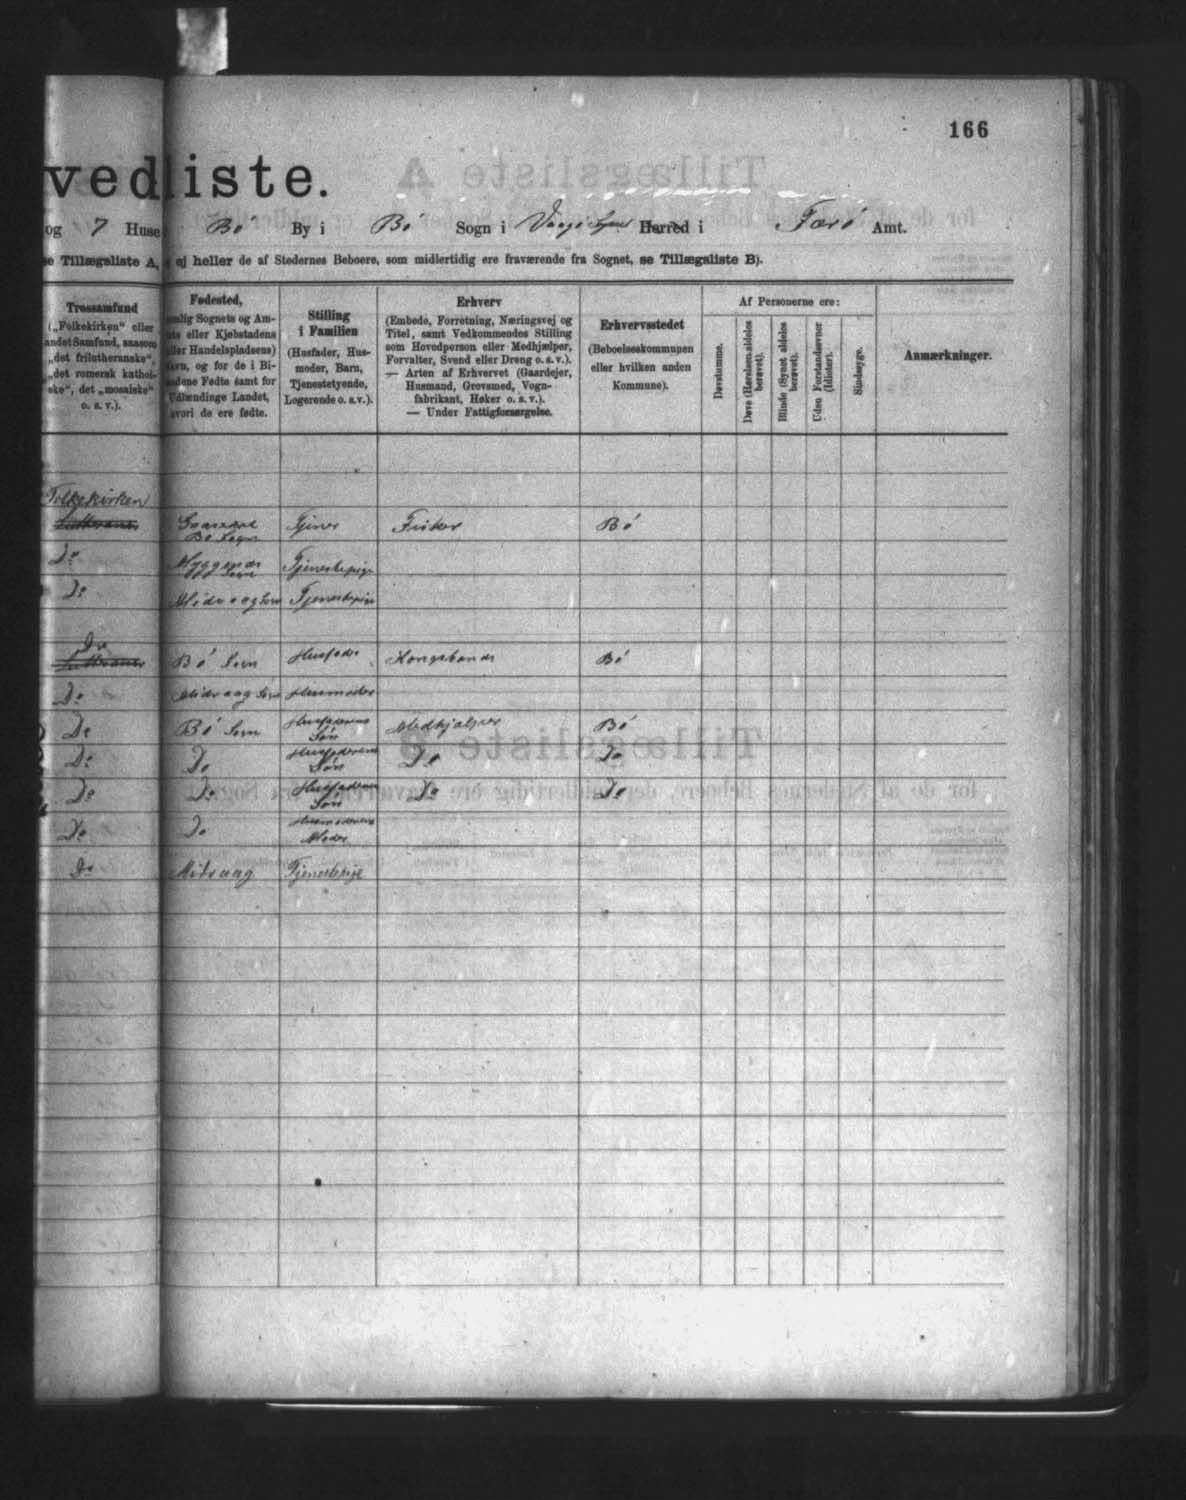 166
vedliste.
og 7 Huse Bø By i Bø Sogn i Vaagø Syssel Herred i Færø Amt.
se Tillægsliste A, ej heller de af Stedernes Beboere, som midlertidig ere fraværende fra Sognet, se Tillægsliste B).
Trossamfund
(„Folkekirken" eller
andet Samfund, saasom
„det frilutheranske",
„det romersk katholske",
det „mosaiske"
o. s. v.).
Fødested,
nemlig Sognets og Amtets
eller Kjøbstadens
(eller Handelspladsens)
Navn, og for de i Bilandene
Fødte samt for
Udlændinge Landet,
hvori de ere fødte.
Stilling
i Familien
(Husfader, Husmoder,
Barn,
Tjenestetyende,
Logerende o. s. v.).
Erhverv
(Embede, Forretning, Næringsvej og
Titel, samt Vedkommendes Stilling
som Hovedperson eller Medhjælper,
Forvalter, Svend eller Dreng o. s. v.).
— Arten af Erhvervet (Gaardejer,
Husmand, Grovsmed, Vognfabrikant,
Høker o. s. v.).
— Under Fattigforsørgelse.
Erhvervsstedet
(Beboelseskommunen
eller hvilken anden
Kommune).
Af Personerne ere:
Døvstumme.
Døve (Hørelsen aldeles berøvet).
Blinde (Synet aldeles berøvet).
Uden Forstandsevner (Idioter).
Sindssyge.
Anmærkninger.
Folkekirken
Lutheraner Gaasedal Tjener Fisker Bø
Bø Sogn
Do Myggenæs Tjenestepige
Sogn
Do Midvaag Sogn Tjenestepige
Do
Lutheraner Bø Sogn Husfader Kongsbonde Bø
Do Midvaag Sogn Husmoder
Do Bø Sogn Husfaderens Medhjælper Bø
Søn
Do Do Husfaderens Do Do
Søn
Do Do Husfaderens Do Do
Søn
Do Do Husmoderens
Moder
Do Midvaag Tjenestepige